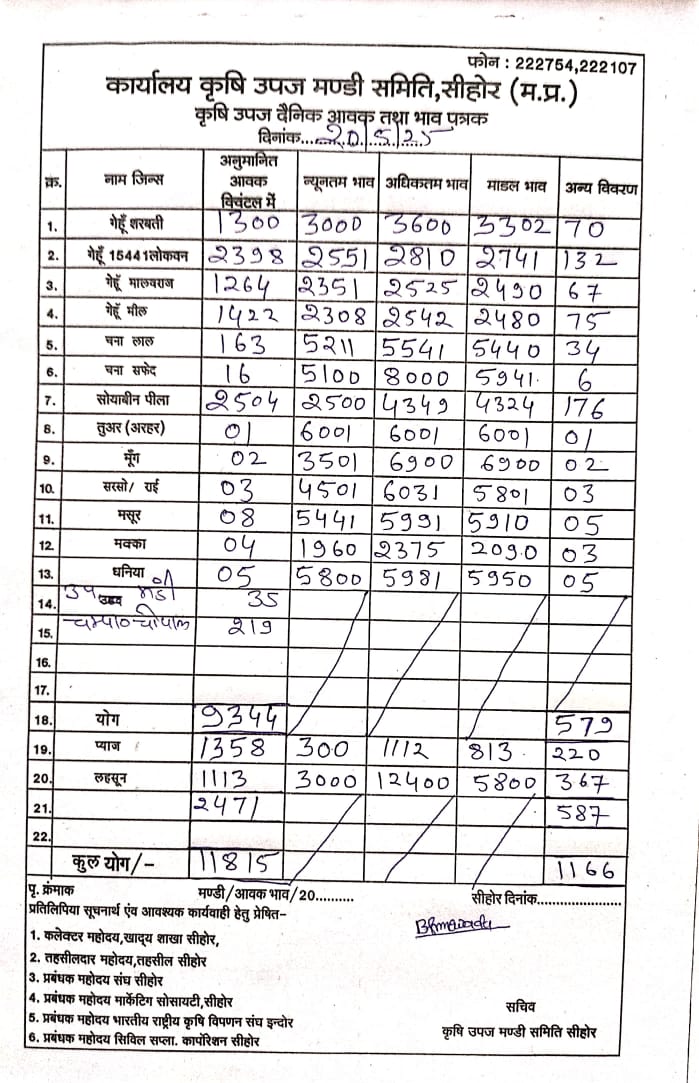 फोन : 222754,222107
कार्यालय कृषि उपज मण्डी समिति,सीहोर (म.प्र.)
कृषि उपज दैनिक आवक तथा भाव पत्रक
दिनांक....20/5/25
क्र. नाम जिन्स अनुमानित आवक क्विंटल में न्यूनतम भाव अधिकतम भाव माडल भाव अन्य विवरण
1. गेहूँ शरबती 1300 3000 3600 3302 70
2. गेहूँ 15441लोकवन 2398 2551 2810 2741 132
3. गेहूँ मालवराज 1264 2351 2525 2490 67
4. गेहूँ मील 1422 2308 2542 2480 75
5. चना लाल 163 5211 5541 5440 34
6. चना सफेद 16 5100 8000 5941. 6
7. सोयाबीन पीला 2504 2500 4349 4324 176
8. तुअर (अरहर) 01 6001 6001 6001 01
9. मूँग 02 3501 6900 6900 02
10. सरसो/ राई 03 4501 6031 5801 03
11. मसूर 08 5441 5991 5910 05
12. मक्का 04 1960 2375 2090 03
13. धनिया 05 5800 5981 5950 05
14. उप मंडी 35
15. 219
16.
17.
18. योग 9344 579
19. प्याज 1358 300 1112 813. 220
20. लहसून 1113 3000 12400 5800 367
21. 2471 587
22.
कुल योग/- 11815 1166
पृ. क्रंमाक मण्डी/आवक भाव/20.......... सीहोर दिनांक.......................
प्रतिलिपिया सूचनार्थ एंव आवश्यक कार्यवाही हेतु प्रेषित-
1. कलेक्टर महोदय,खाद्य शाखा सीहोर,
2. तहसीलदार महोदय,तहसील सीहोर
3. प्रबंधक महोदय संघ सीहोर
4. प्रबंधक महोदय मार्केटिंग सोसायटी,सीहोर
5. प्रबंधक महोदय भारतीय राष्ट्रीय कृषि विपणन संघ इन्दोर
6. प्रबंधक महोदय सिविल सप्ला. कार्पोरेशन सीहोर
सचिव
कृषि उपज मण्डी समिति सीहोर